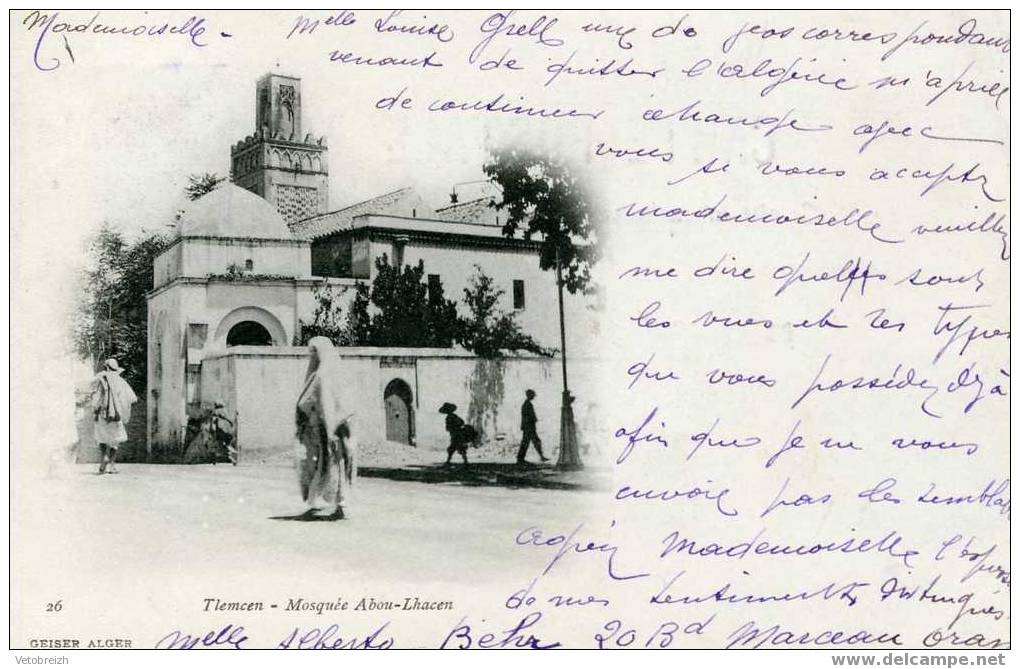 Mademoiselle.
Melle Louise Grell une de
venant de quitter l'algérie m'a
de continuer échange avec
vous si vous acceptez
mademoiselle veuillez
me dire quelles sont
les vues et les types
que vous possédez déjà
afin que je ne vous
envoie pas les
Mademoiselle
de mes sentiments distingués
Melle Behr 20 Bd Marceau oran
26 Tlemcen - Mosquée Abou-Lhacen
GEISER ALGER
Vetobreizh
www.delcampe.net